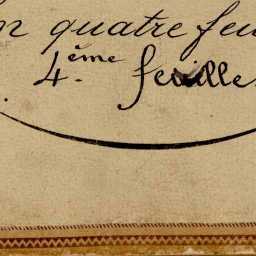 en quatre feu
4.ème feuille.